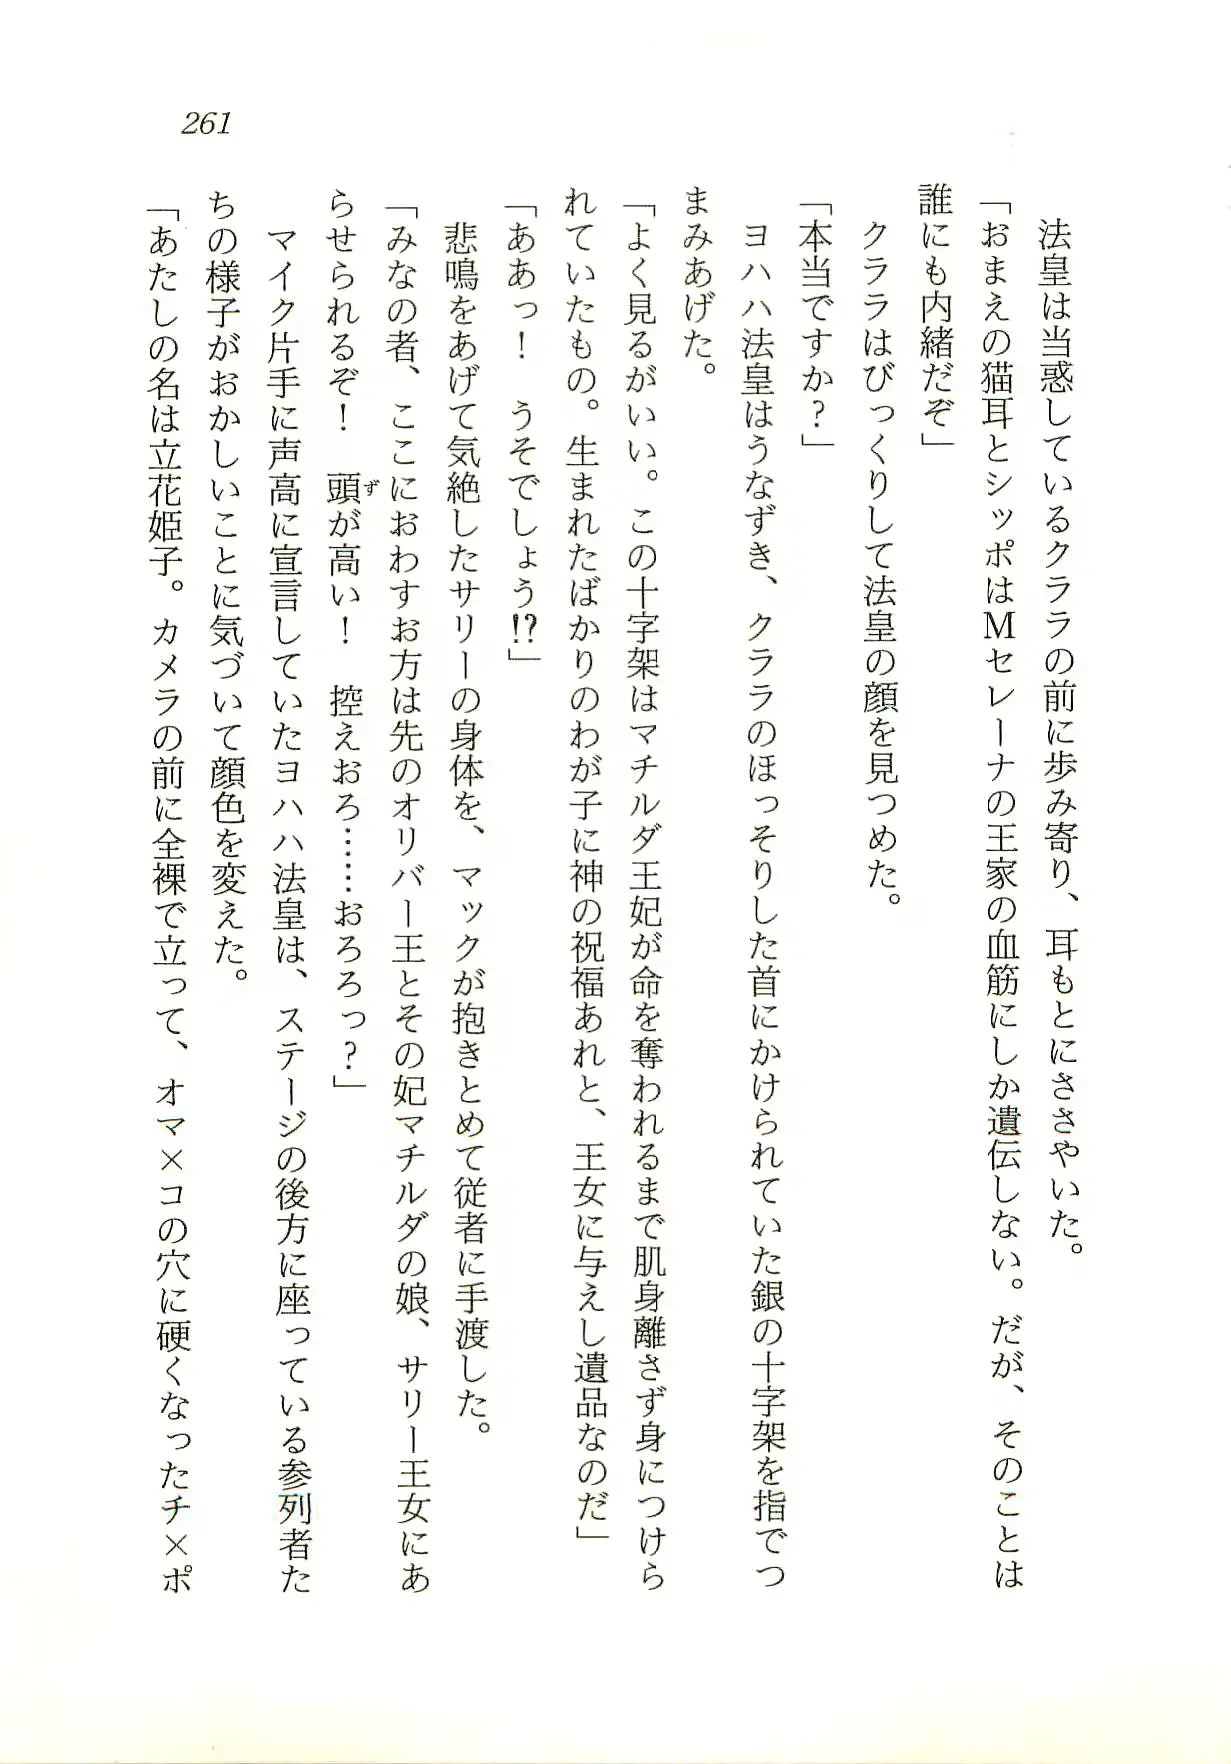 261
法皇は当惑しているクララの前に歩み寄り、耳もとにささやいた。
「おまえの猫耳とシッポはMセレーナの王家の血筋にしか遺伝しない。だが、そのことは
誰にも内緒だぞ」
クララはびっくりして法皇の顔を見つめた。
「本当ですか?」
ヨハハ法皇はうなずき、クララのほっそりした首にかけられていた銀の十字架を指でつ
まみあげた。
「よく見るがいい。この十字架はマチルダ王妃が命を奪われるまで肌身離さず身につけら
れていたもの。生まれたばかりのわが子に神の祝福あれと、王女に与えし遺品なのだ」
「ああっ! うそでしょう!?」
悲鳴をあげて気絶したサリーの身体を、マックが抱きとめて従者に手渡した。
「みなの者、ここにおわすお方は先のオリバー王とその妃マチルダの娘、サリー王女にあ
らせられるぞ! 頭ずが高い! 控えおろ……おろろっ?」
マイク片手に声高に宣言していたヨハハ法皇は、ステージの後方に座っている参列者た
ちの様子がおかしいことに気づいて顔色を変えた。
「あたしの名は立花姫子。カメラの前に全裸で立って、オマ×コの穴に硬くなったチ×ポ